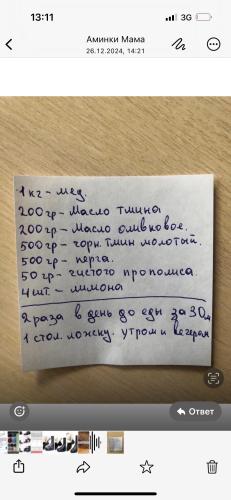 13:11
3G
Аминки Мама
26.12.2024, 14:21
1 кг - мед.
200 гр - Масло тмина
200 гр - Масло оливковое.
500 гр - чорн. тмин молотый.
500 гр - перга.
50 гр - чистого прополиса.
4 шт. - лимона
2 раза в день до еды за 30м
1 стол. ложку. утром и вечером
Ответ